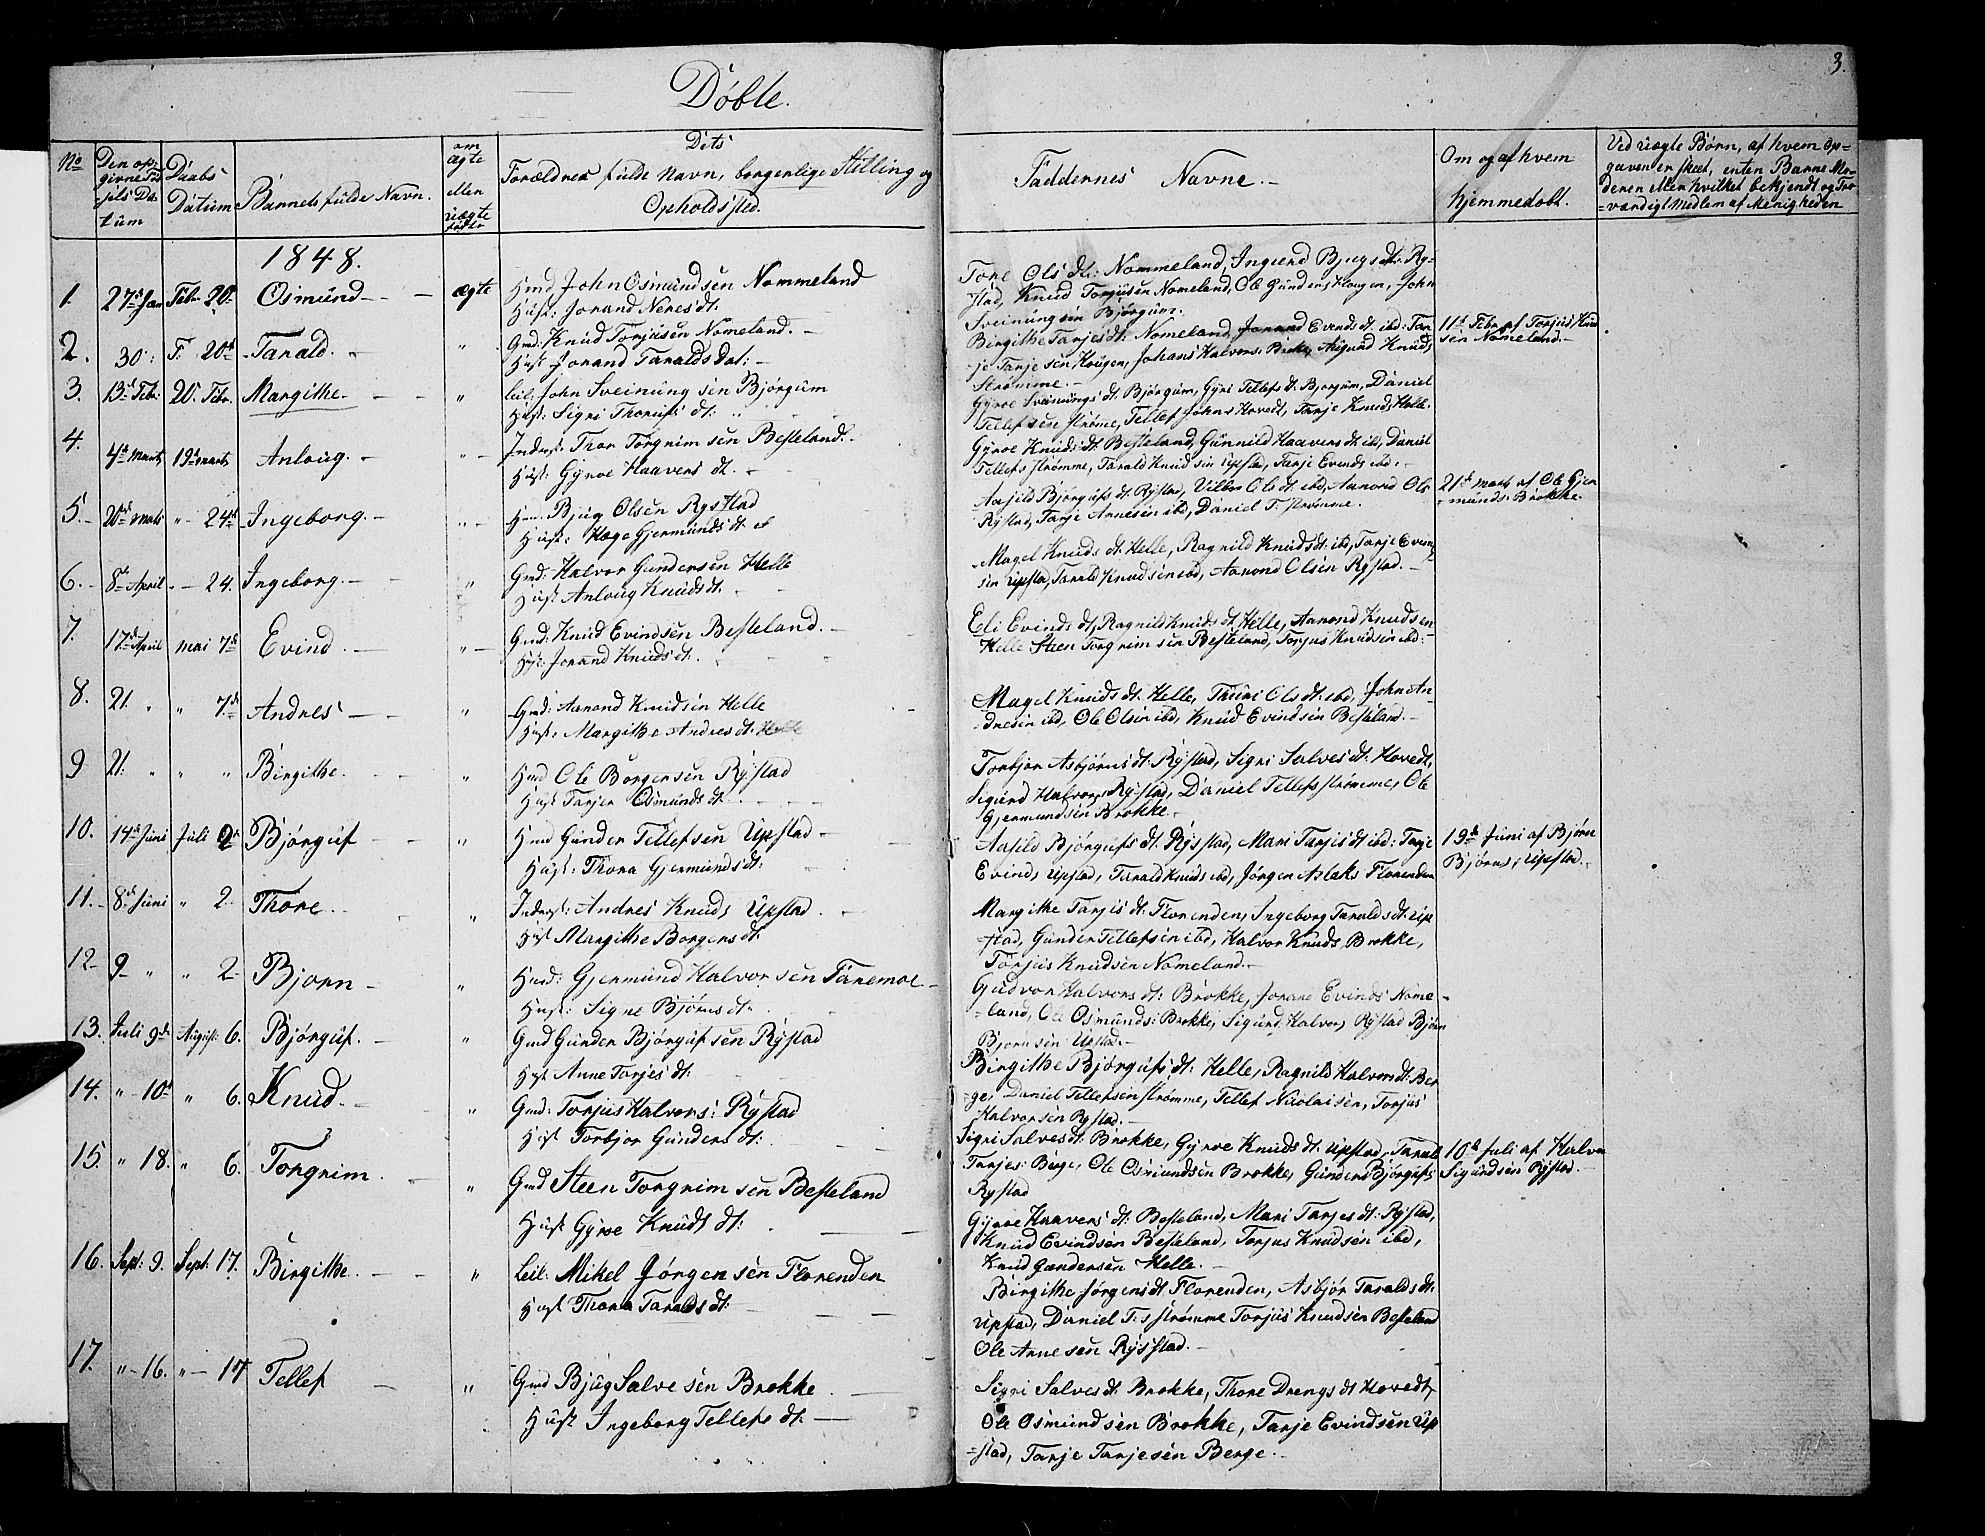 3.
Døbte.
No
Den op-
givne Fød
sels Da
tum
Daabs
Datum
Barnets fulde Navn.
om
ægte
eller
uægte
født
Dets
Forældres fulde Navn, borgerlige Stilling og
Opholdssted.
Faddernes Navne.
Om og af hvem
hjemmedøbt.
Ved uægte Børn, af hvem Op-
gaven er skeet, enten Barnets Mo-
deren eller hvilket bekjendt og Tro
-værdigt Medlem af Menigheden
1848.
1. 27d Jan Febr 20d Osmund ægte Hmd John Osmundsen Nommeland
Hust: Jorand Neresdt.
Tone Olsdt: Nommeland, Ingerd Bjugsdt: Ry-
stad, Knud Torjusen Nomeland, Ole Gunders Hougen, John
Sveinungsen Bjørgum.
2. 30 F: 20d Tarald. " Gmd: Knud Torjusen Nomeland.
Hust Jorand Taraldsdat:
Birgithe Tarjesdt: Nomeland, Jorand Evindsdt ibd: Tar
je Tarjesen Hougen, Johans Halvors: Brokke, Sigurd Knuds
Strømme.
11d Febr af Torjus Knud
sen Nomeland.
3. 13d Febr: 20d Febr. Margithe. " Leil: John Sveinungsen Bjørgum
Hust: Sigri Thorufs dt:
Gyroe Sveinungsdt. Bjørgum, Gyri Tellefsdt. Bjorgum, Daniel
Tellefsen Strømme, Tellef Johns Hovedt, Tarje Knuds Helle.
4. 4d Marts 19d Marts Anloug. " Inderst: Thor Torgrimsen Besteland.
Hust: Gyroe Haavers dt.
Gyroe Knudsdt: Besteland, Gunnild Haaversdt ibd, Daniel
Tellefs Strømme, Tarald Knudsen Upstad, Tarje Evinds ibd.
5. 20d Marts " 24d Ingeborg. " Hmd: Bjug Olsen Rysstad
Hust: Hæge Gjermunds dt
Aasild Bjørgufsdt. Rystad, Vilbor Olsdt ibd, Aanond Ols
Rystad, Tarje Arnesen ibd, Daniel T. Strømme.
21d Marts af Ole Gjer
munds: Brokke.
6. 8d April " 24. Ingeborg. " Gmd: Halvor Gundersen Helle
Hust Anloug Knudsdt.
Magel Knuds dt. Helle, Ragnild Knudsdt. ibd, Tarje Evend
sen Upstad, Tarald Knudsen ibd, Aanond Olsen Rystad.
7. 17d April Mai 7d Evind. " Gmd: Knud Evindsen Besteland.
Hust: Jorand Knudsdt.
Eli Evindsdt, Ragnild Knudsdt. Helle, Aanond Knudsen
Helle Steen Torgrimsen Besteland, Torjus Knudsen ibd:
8. 21. " " 7d Andres " Gmd: Aanond Knudsen Helle
Hust: Margithe Andresdt. Helle
Magel Knudsdt. Helle, Thuri Olsdt. ibd, John An-
dresen ibd, Ole Olsen ibd, Knud Evindsen Besteland.
9 21: " " " Birgithe. " Hmd Ole Borgersen Rystad
Hust Tarjer Osmunds dt.
Torbjor Asbjørnsdt: Rystad, Sigri Salvesdt. Hovedt,
Sigurd Halvors Rystad, Daniel Tellefs Strømme, Ole
Gjermundsen Brokke.
10. 14d Juni Juli 2d Bjørguf " Hmd Gunder Tellefsen Upstad
Hust: Thora Gjermunds dt:
Aasild Bjørgufsdt. Rystad, Mari Tarjesdt ibd: Tarje
Evinds Upstad, Tarald Knuds ibd, Jørgen Aslaks Florenden
19d Juni af Bjørn
Bjørns, Upstad.
11. 8d Juni " 2. Thore. " Inderst: Andres Knuds Upstad.
Hust Margithe Borgersdt.
Margithe Tarjesdt: Florenden, Ingeborg Taraldsdt. Up
stad, Gunder Tellefsen ibd, Halvor Knuds Brokke,
Torjus Knudsen Nomeland.
12 9 " " 2 Bjorn " Hmd: Gjermund Halvorsen Fanemoe
Hust: Signe Bjørnsdt.
Gudvor Halvorsdt: Brokke, Jorand Evinds Nome-
land, Ole Osmunds: Brokke, Sigurd Halvors Rystad Bjørn
Bjørnsen Upstad.
13. Juli 9d August: 6. Bjørguf. " Gmd Gunder Bjørgufsen Rystad
Hust Anne Torjes dt:
Birgithe Bjørgufsdt: Helle, Ragnild Halvorsdt. Ber
ge, Daniel Tellefsen Strømme, Tellef Nicolaisen, Torjus
Halvorsen Rystad.
14. " 10d " 6. Knud. " Gmd: Torjus Halvors: Rystad
Hust Torbjor Gunders dt:
Sigri Salvesdt. Brokke, Gyroe Knudsdt. Upstad, Tarald
Tarjes: Berge, Ole Osmundsen Brokke, Gunder Bjørgufs
Rystad
10d Juli af Halvor
Sigurdsen Rystad.
15. " 18. " 6. Torgrim. " Gmd Steen Torgrimsen Besteland
Hust Gyroe Knuds dt:
Gyroe Haavers dt: Besteland, Mari Tarjesdt: Rystad,
Knud Evindsen Besteland, Torjus Knudsen ibd,
Knud Gundersen Helle.
16. Sept: 9. Sept: 17. Birgithe. " Leil: Mikel Jørgensen Florenden
Hust Thora Taraldsdt:
Birgithe Jørgensdt Florenden, Asbjør Taraldsdt.
Upstad, Daniel T:s Strømme Torjus Knudsen Besteland
Ole Arnesen Rysstad.
17. " 16. " 17 Tellef " Gmd Bjug Salvesen Brokke
Hust Ingeborg Tellefs dt:
Sigri Salvesdt. Brokke, Thore Drengsdt Hovedt,
Ole Osmundsen Brokke, Tarje Evindsen Up
stad, Tarje Tarjesen Berge.